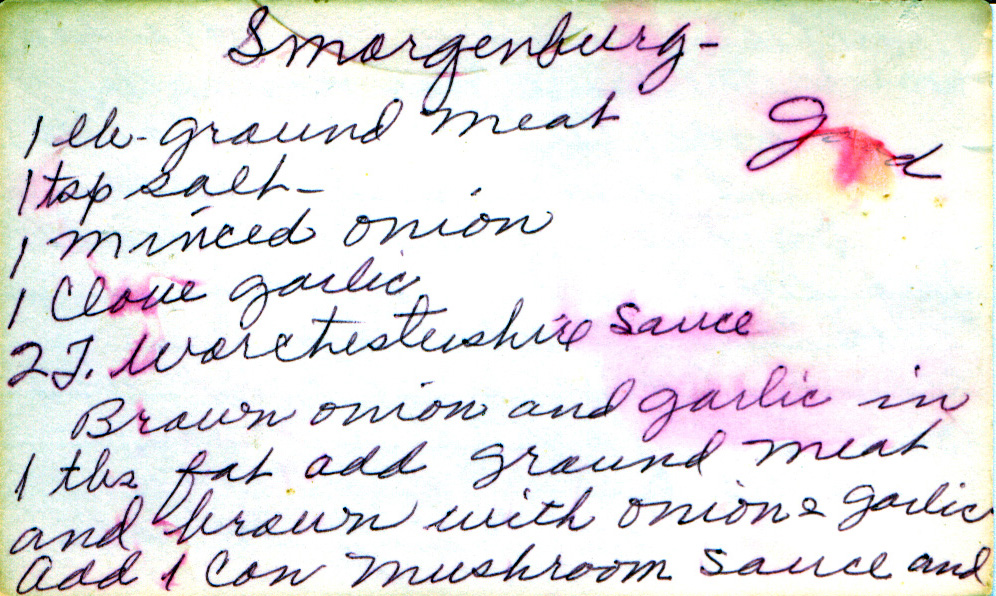 Smorgenburg-
Good
1 lb-ground meat
1 tsp salt-
1 minced onion
1 Clove garlic
2 T. Worchestershire Sauce
Brown onion and garlic in
1 tbs fat add ground meat
and brown with onion & garlic
Add 1 Can Mushroom Sauce and